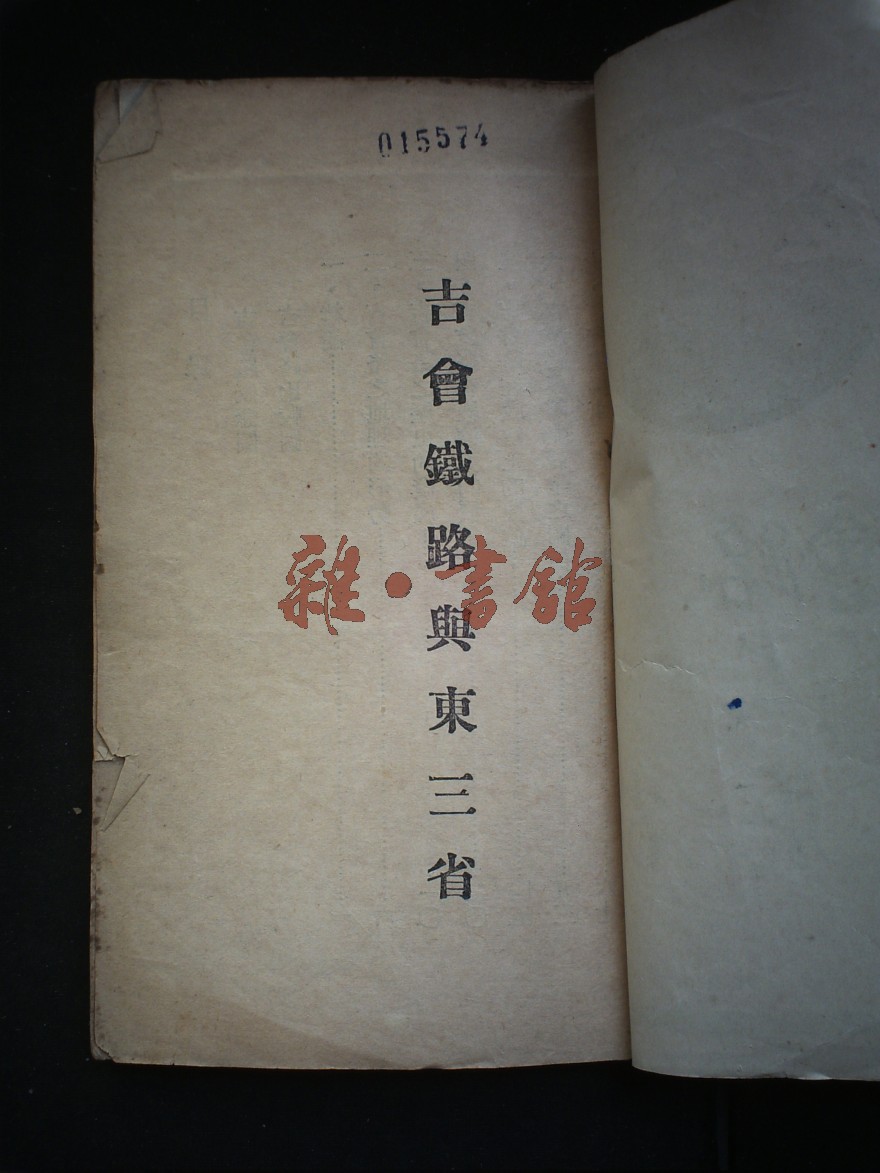 015574
吉會鐵路與東三省
雜·書館